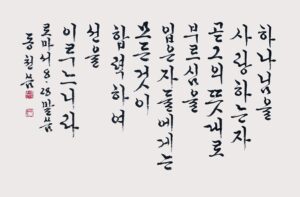 하나님을
사랑하는자
곧그의뜻대로
부르심을
입은자들에게는
모든것이
합력하여
선을
이루느니라
로마서8:28말씀
동천씀